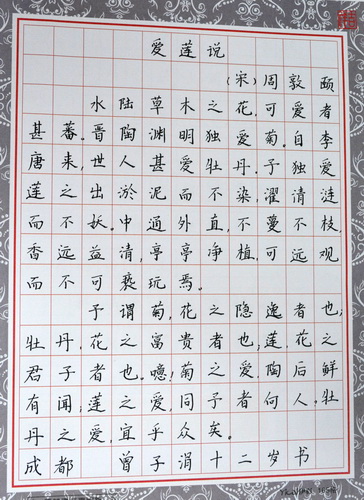 爱莲说
(宋)周敦颐
水陆草木之花,可爱者
甚蕃。晋陶渊明独爱菊。自李
唐来,世人甚爱牡丹。予独爱
莲之出淤泥而不染,濯清涟
而不妖。中通外直,不蔓不枝。
香远益清,亭亭净植,可远观
而不可亵玩焉。
予谓菊,花之隐逸者也;
牡丹,花之富贵者也;莲,花之
君子者也。噫!菊之爱,陶后鲜
有闻;莲之爱,同予者何人,牡
丹之爱,宜乎众矣。
成都 曾子涓十二岁书